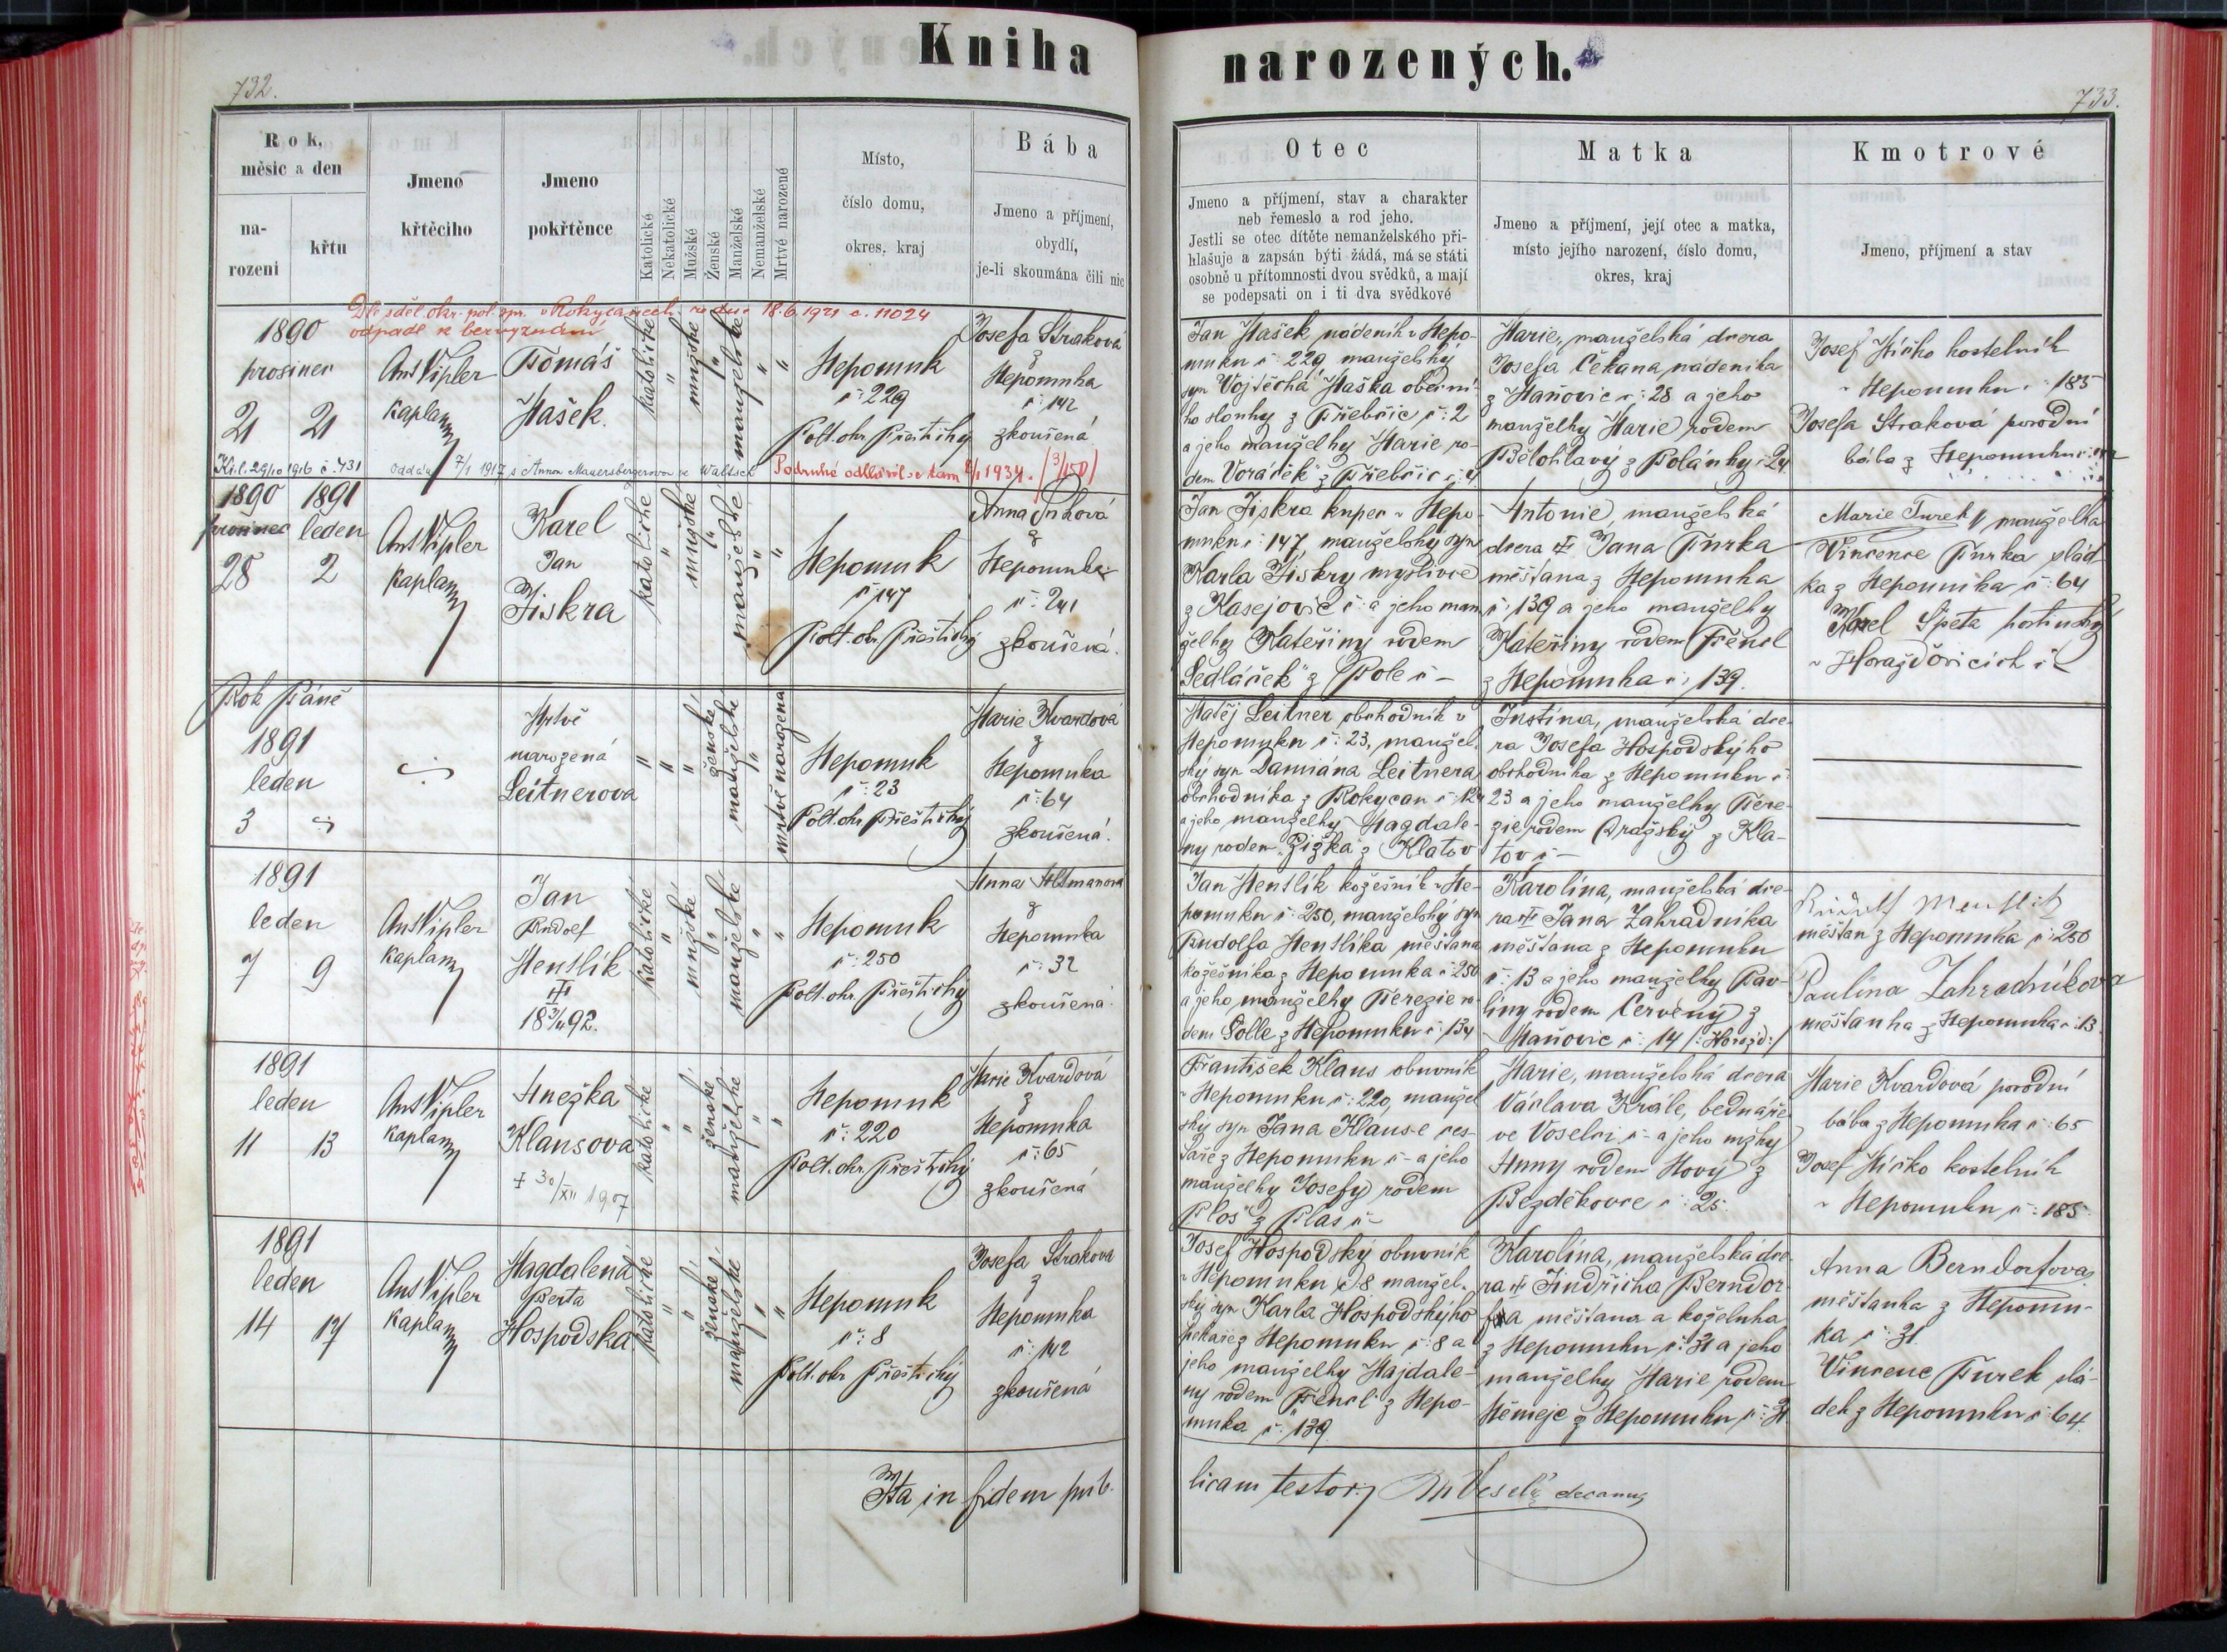 Kniha
732.
Rok,
měsíc a den
na-
rození
křtu
Jmeno
křtěcího
Jmeno
pokřtěnce
Katolické
Nekatolické
Mužské
Ženské
Manželské
Nemanželské
Mrtvé narozené
Místo,
číslo domu,
okres, kraj
Bába
Jmeno a příjmení,
obydlí,
je-li skoumána čili nic
Dle sděl. okr. pol. spr. v Rokycanech ze dne 18.6.1921 č. 11024
odpadl k bezvyznání
1890
prosinec
21 21
Ant Vipler
kaplan
Tomáš
Hašek.
katolické
mužské
manželské
Nepomuk
č: 229
Polt. okr. Přeštický
Josefa Straková
z
Nepomuka
č: 142
zkoušená
K.i.l. 29/10 1916 č. 431 oddán 7/1 1917 s Annou Mauersbergerovou ve Waltsch
1890 1891
prosinec leden
28 2
Ant Vipler
kaplan
Karel
Jan
Jiskra
katolické
mužské
manželské
Nepomuk
č: 147
Polt. okr. Přeštický
Anna
z
Nepomuka
č: 241
zkoušená.
Rok Páně
1891
leden
3
Mrtvě
narozená
Leitnerova
ženské
manželské
mrtvě narozena
Nepomuk
č: 23
Polt. okr. Přeštický
Marie Kvardová
z
Nepomuka
č: 64
zkoušená.
1891
leden
7 9
Ant Vipler
kaplan
Jan
Rudolf
Menšlík
92.
katolické
mužské
manželské
Nepomuk
č: 250
Polt. okr. Přeštický
Anna Altmanova
z
Nepomuka
č: 32
zkoušená.
1891
leden
11 13
Ant Vipler
kaplan
Anežka
Klausova
30/XII 1907
katolické
ženské
manželské
Nepomuk
č: 220
Polt. okr. Přeštický
Marie Kvardová
z
Nepomuka
č: 65
zkoušená
1891
leden
14 17
Ant Vipler
kaplan
Magdalena
Berta
Hospodska
katolické
ženské
manželské
Nepomuk
č: 8
Polt. okr. Přeštický
Josefa Straková
z
Nepomuka
č: 142
zkoušená
Ita in fidem pub-
narozených.
733.
Otec
Jmeno a příjmení, stav a charakter
neb řemeslo a rod jeho.
Jestli se otec dítěte nemanželského při-
hlašuje a zapsán býti žádá, má se státi
osobně u přítomnosti dvou svědků, a mají
se podepsati on i ti dva svědkové
Matka
Jmeno a příjmení, její otec a matka,
místo jejího narození, číslo domu,
okres, kraj
Kmotrové
Jmeno, příjmení a stav
Jan Hašek nádeník v Nepo-
muku č: 229 manželský
syn Vojtěcha Haška obecní-
ho slouhy z Třebčic č: 2
a jeho manželky Marie ro-
dem Voráček z Třebčic č: 4
Marie, manželská dcera
Josefa Čekana, nádeníka
z Maňovic č: 28 a jeho
manželky Marie rodem
Bělohlavý z Polánky č: 24
Josef Mičko kostelník
v Nepomuku č: 185
Josefa Straková porodní
bába z Nepomuku
Jan Jiskra kupec v Nepo-
muku č: 147, manželský syn
Karla Jiskry myslivce
z Kasejovic č: a jeho man
želky Kateřiny rodem
Sedláček z Pole č -
Antonie, manželská
dcera Jana Turka
měšťana z Nepomuka
č: 139 a jeho manželky
Kateřiny rodem Fencl
z Nepomuka č: 139.
Marie Turek manželka
Vincence Turka slád-
ka z Nepomuka č: 64
Karel Špeta
v Horažďovicích č
Matěj Leitner obchodník v
Nepomuku č: 23, manžel.
ský syn Damiána Leitnera
obchodníka z Rokycan č: 124
a jeho manželky Magdale-
ny rodem Žižka z Klatov
Justina, manželská dce-
ra Josefa Hospodskýho
obchodníka z Nepomuku č
23 a jeho manželky Tere-
zie rodem Pražský z Kla-
tov č -
Jan Menšlík kožešník v Ne-
pomuku č: 250, manželský syn
Rudolfa Menšlíka měšťana
kožešníka z Nepomuka č: 250
a jeho manželky Terezie ro-
dem Solle z Nepomuku č: 134
Karolina, manželská dce-
ra Jana Zahradníka
měšťana z Nepomuku
č: 13 a jeho manželky Pav-
líny rodem Červený z
Maňovic č: 14 /: Horažd:/
Rudolf Menšlik
měšťan z Nepomuka č: 250
Paulina Zahradníkova
měšťanka z Nepomuka č: 13.
František Klaus obuvník
v Nepomuku č: 220, manžel
ský syn Jana Klause ces-
táře z Nepomuku č - a jeho
manželky Josefy rodem
Plos z Plas č -
Marie, manželská dcera
Václava Krále, bednáře
ve Voselci č - a jeho mžky
Anny rodem Nový z
Bezděkovce č: 25.
Marie Kvardová porodní
bába z Nepomuka č: 65
Josef Mičko kostelník
v Nepomuku č: 185.
Josef Hospodský obuvník
v Nepomuku č 8 manžel.
ský syn Karla Hospodskýho
pekaře z Nepomuku č: 8 a
jeho manželky Majdale-
ny rodem Fencl z Nepo-
muka č: 139.
Karolina, manželská dce-
ra Jindřicha Berndor-
fa měšťana a koželuha
z Nepomuku č: 31 a jeho
manželky Marie rodem
Němejc z Nepomuku č: 31
Anna Berndorfova
měšťanka z Nepomu-
ka č: 31.
Vincenc Turek slá-
dek z Nepomuku č: 64.
licam testor: Veselý decanus